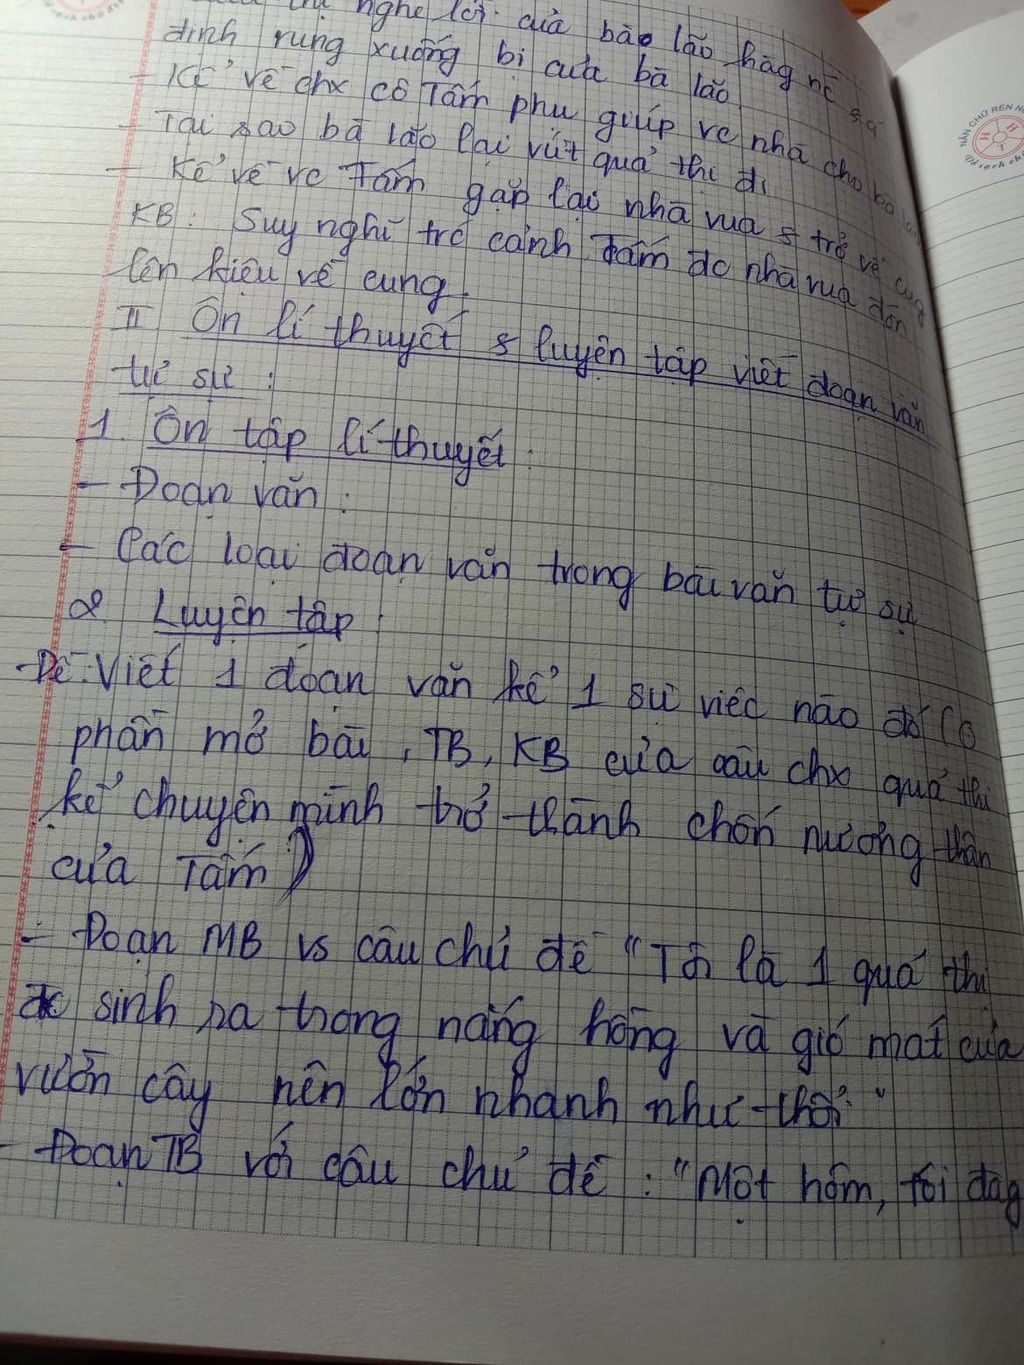 thị nghe lời của bão lão hàg nc
định rung xuống bị của bà lão
- Kể về chx cô Tấm phụ giúp vc nhà cho bà lão
- Tại sao bà lão lại vứt quả thị đi
- Kể về vc Tấm gặp lại nhà vua & trở về cug
KB: Suy nghĩ trc cảnh Tấm đc nhà vua đón
lên kiệu về cung
II Ôn lí thuyết & luyện tập viết đoạn văn
tự sự :
1. Ôn tập lí thuyết :
- Đoạn văn :
- Các loại đoạn văn trong bài văn tự sự
2. Luyện tập :
- Đề: Viết 1 đoạn văn kể 1 sự việc nào đó (có
phần mở bài, TB, KB của câu chx quả thị
kể chuyện mình trở thành chốn nương thân
của Tấm)
- Đoạn MB vs câu chủ đề "Tôi là 1 quả thị
đc sinh ra trong nắng hồng và gió mát của
vườn cây nên lớn nhanh như thổi."
- Đoạn TB với câu chủ đề : "Một hôm, tôi đag